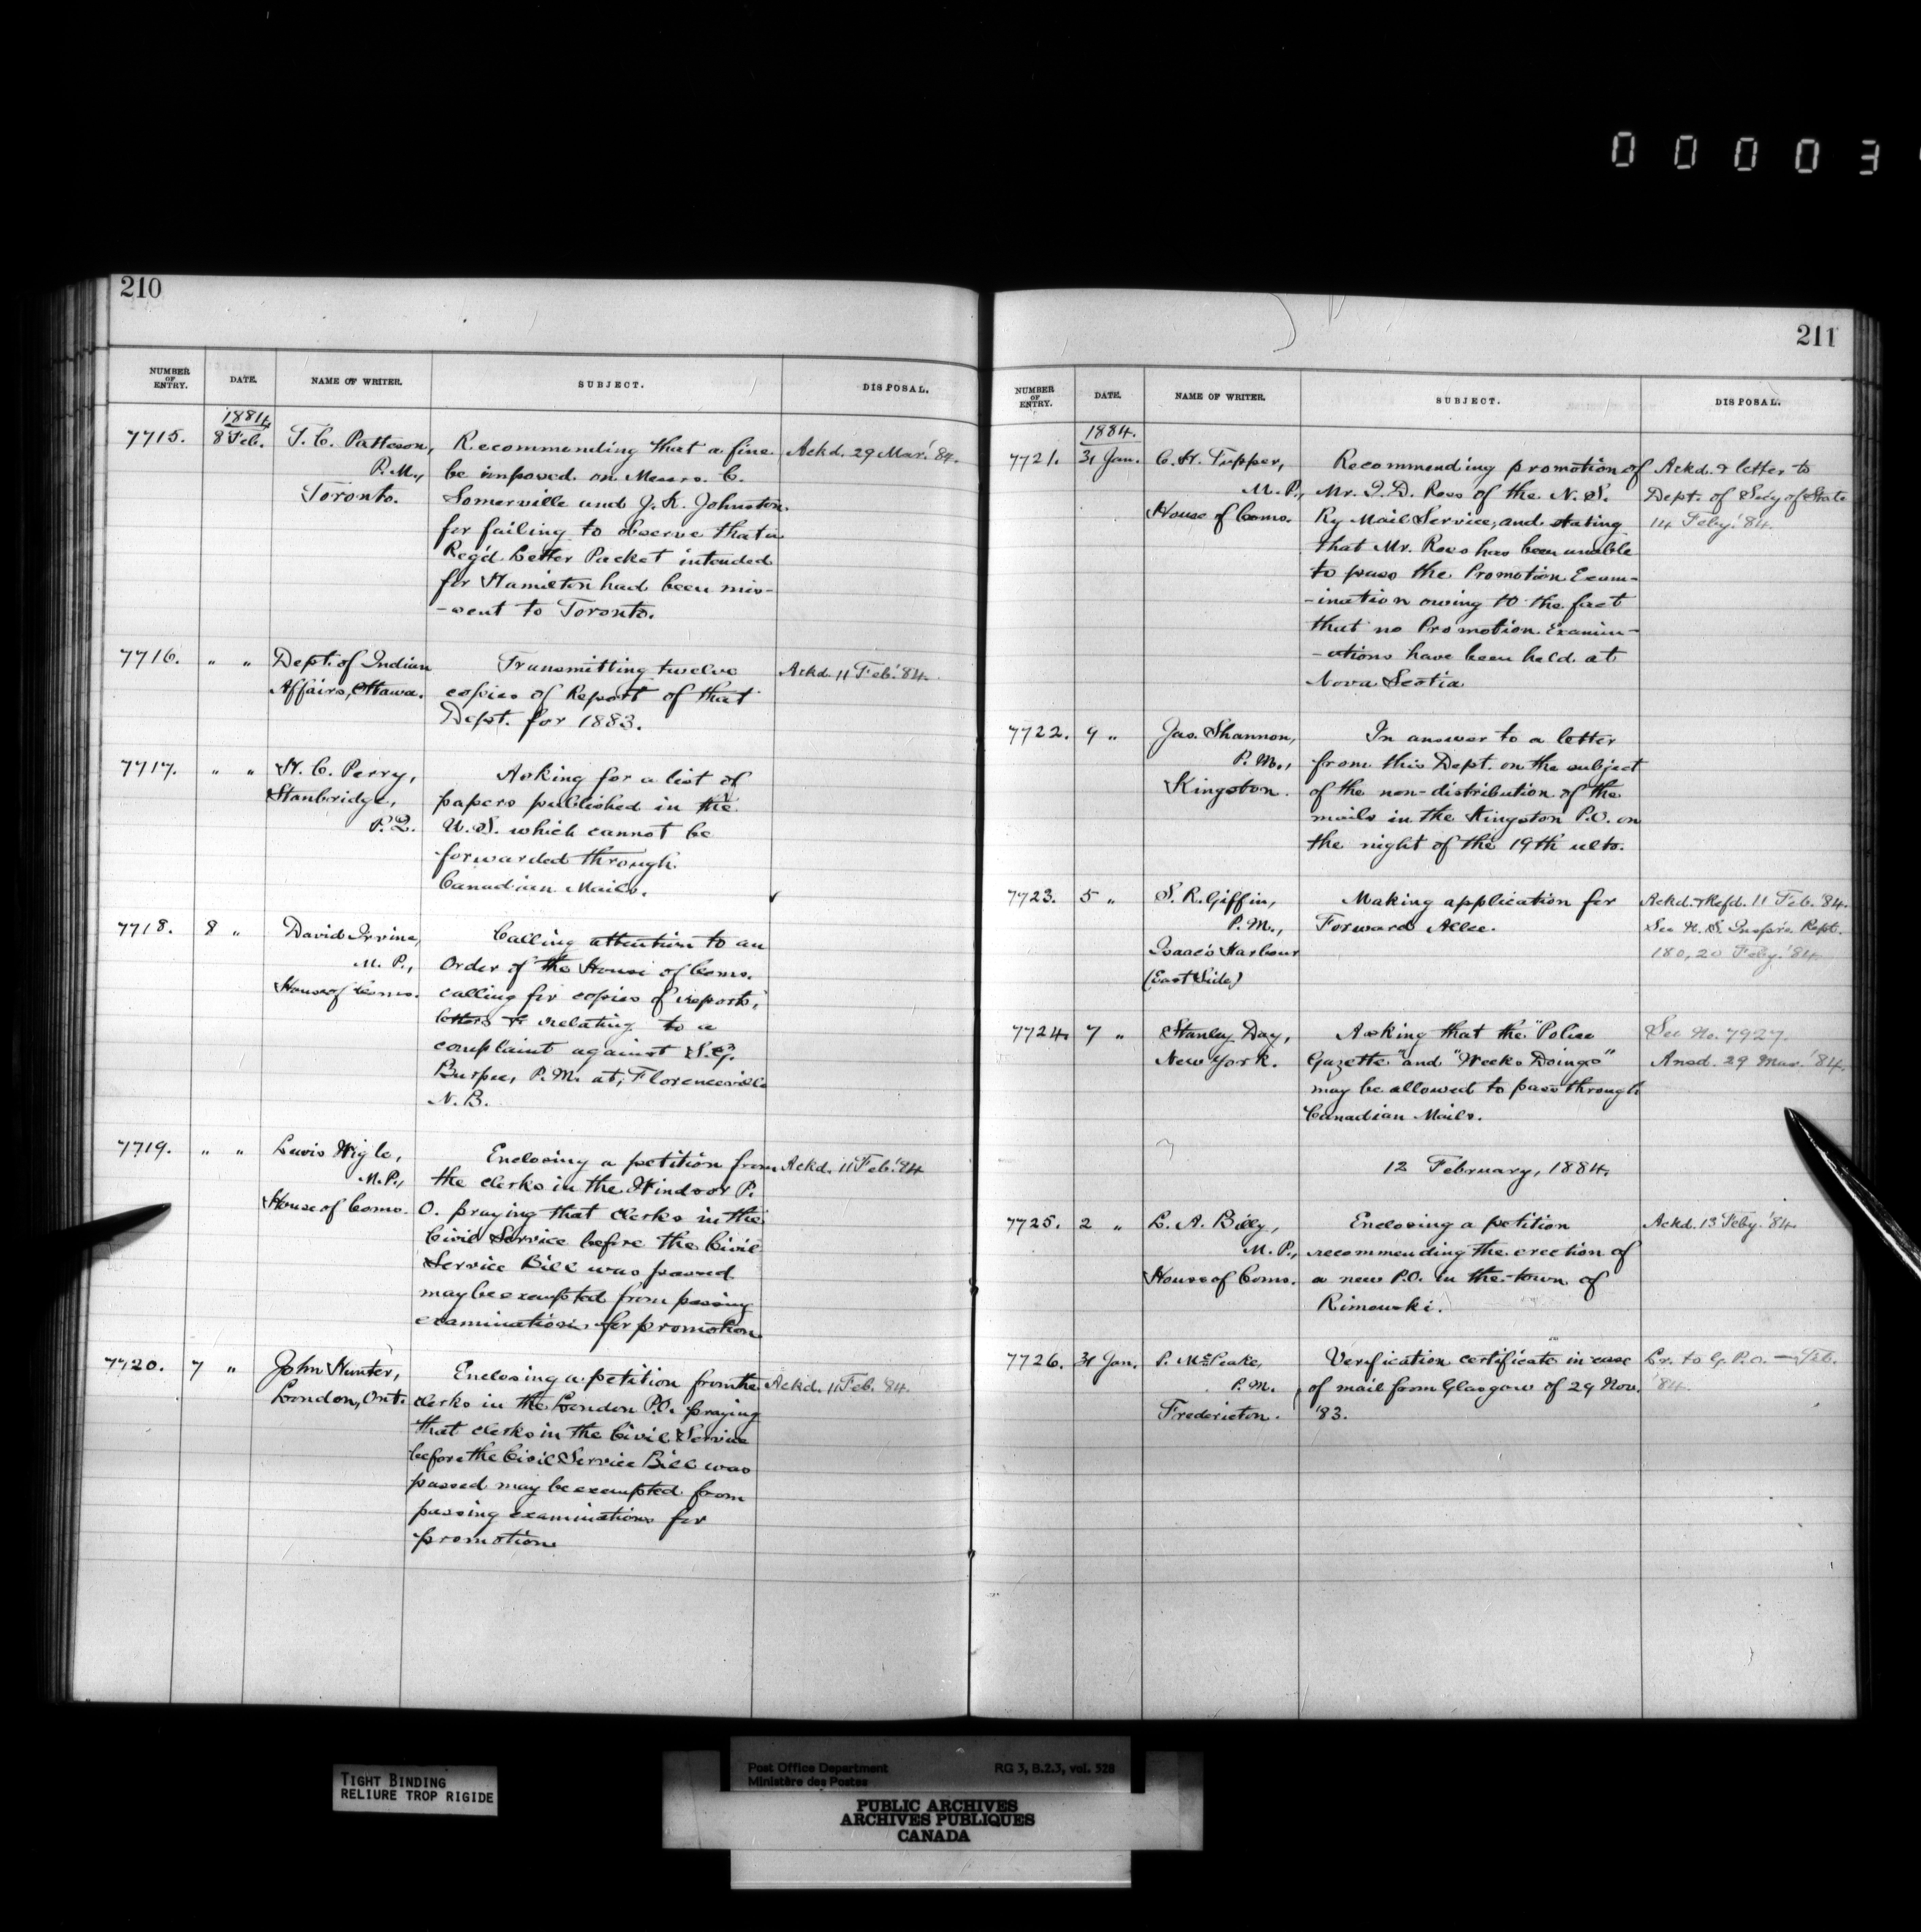 0 0 0 0 3
210
NUMBER OF ENTRY. DATE. NAME OF WRITER. SUBJECT. DISPOSAL.
1884
7715. 8 Feb. T. C. Patteson, Recommending that a fine Ackd. 29 Mar. '84.
P.M., be imposed on Messrs. C.
Toronto. Somerville and J. K. Johnston
for failing to observe that a
Reg'd Letter Packet intended
for Hamilton had been mis-
-sent to Toronto.
7716. " " Dept. of Indian Transmitting twelve Ackd. 11 Feb. '84.
Affairs, Ottawa. copies of Report of that
Dept. for 1883.
7717. " " H. C. Perry, Asking for a list of
Stanbridge, papers published in the
P.Q. U.S. which cannot be
forwarded through
Canadian Mails.
7718. 8 " David Irvine, Calling attention to an
M.P., Order of the House of Coms.
House of Coms. calling for copies of reports,
letters &c relating to a
complaint against S. G.
Burpee, P.M. at, Florenceville
N.B.
7719. " " Lewis Wigle, Enclosing a petition from Ackd. 11 Feb. '84
M.P., the clerks in the Windsor P.
House of Coms. O. praying that clerks in the
Civil Service before the Civil
Service Bill was passed
may be exempted from passing
examinations for promotion.
7720. 7 " John Hunter, Enclosing a petition from the Ackd. 11 Feb. '84.
London, Ont. clerks in the London P.O. praying
that clerks in the Civil Service
before the Civil Service Bill was
passed may be exempted from
passing examinations for
promotion
211
NUMBER OF ENTRY. DATE. NAME OF WRITER. SUBJECT. DISPOSAL.
1884.
7721. 31 Jan. C. H. Tupper, Recommending promotion of Ackd. & letter to
M.P., Mr. I. D. Ross of the N.S. Dept. of Sec'y of State
House of Coms. Ry Mail Service, and stating 14 Feby. '84.
that Mr. Ross has been unable
to pass the Promotion Exam-
-ination owing to the fact
that no Promotion Examin-
-ations have been held at
Nova Scotia
7722. 9 " Jas. Shannon, In answer to a letter
P.M., from this Dept. on the subject
Kingston. of the non-distribution of the
mails in the Kingston P.O. on
the night of the 19th ulto.
7723. 5 " S. R. Giffin, Making application for Ackd. & Refd. 11 Feb. '84.
P.M., Forward Allce. See N.S. Insp'rs Rept.
Isaac's Harbour 180, 20 Feby. '84
(East Side)
7724. 7 " Stanley Day, Asking that the "Police See No. 7927.
New York. Gazette" and "Weeks Doings" Ansd. 29 Mar. '84.
may be allowed to pass through
Canadian Mails.
12 February, 1884.
7725. 2 " L. A. Billy, Enclosing a petition Ackd. 13 Feby. '84
M.P., recommending the erection of
House of Coms. a new P.O. in the town of
Rimouski.
7726. 31 Jan. P. McPeake, Verification certificate in case Lr. to G.P.O. — Feb.
P.M. of mail from Glasgow of 29 Nov. '84.
Fredericton. '83.
TIGHT BINDING
RELIURE TROP RIGIDE
Post Office Department RG 3, B.2.3, vol. 528
Ministère des Postes
PUBLIC ARCHIVES
ARCHIVES PUBLIQUES
CANADA